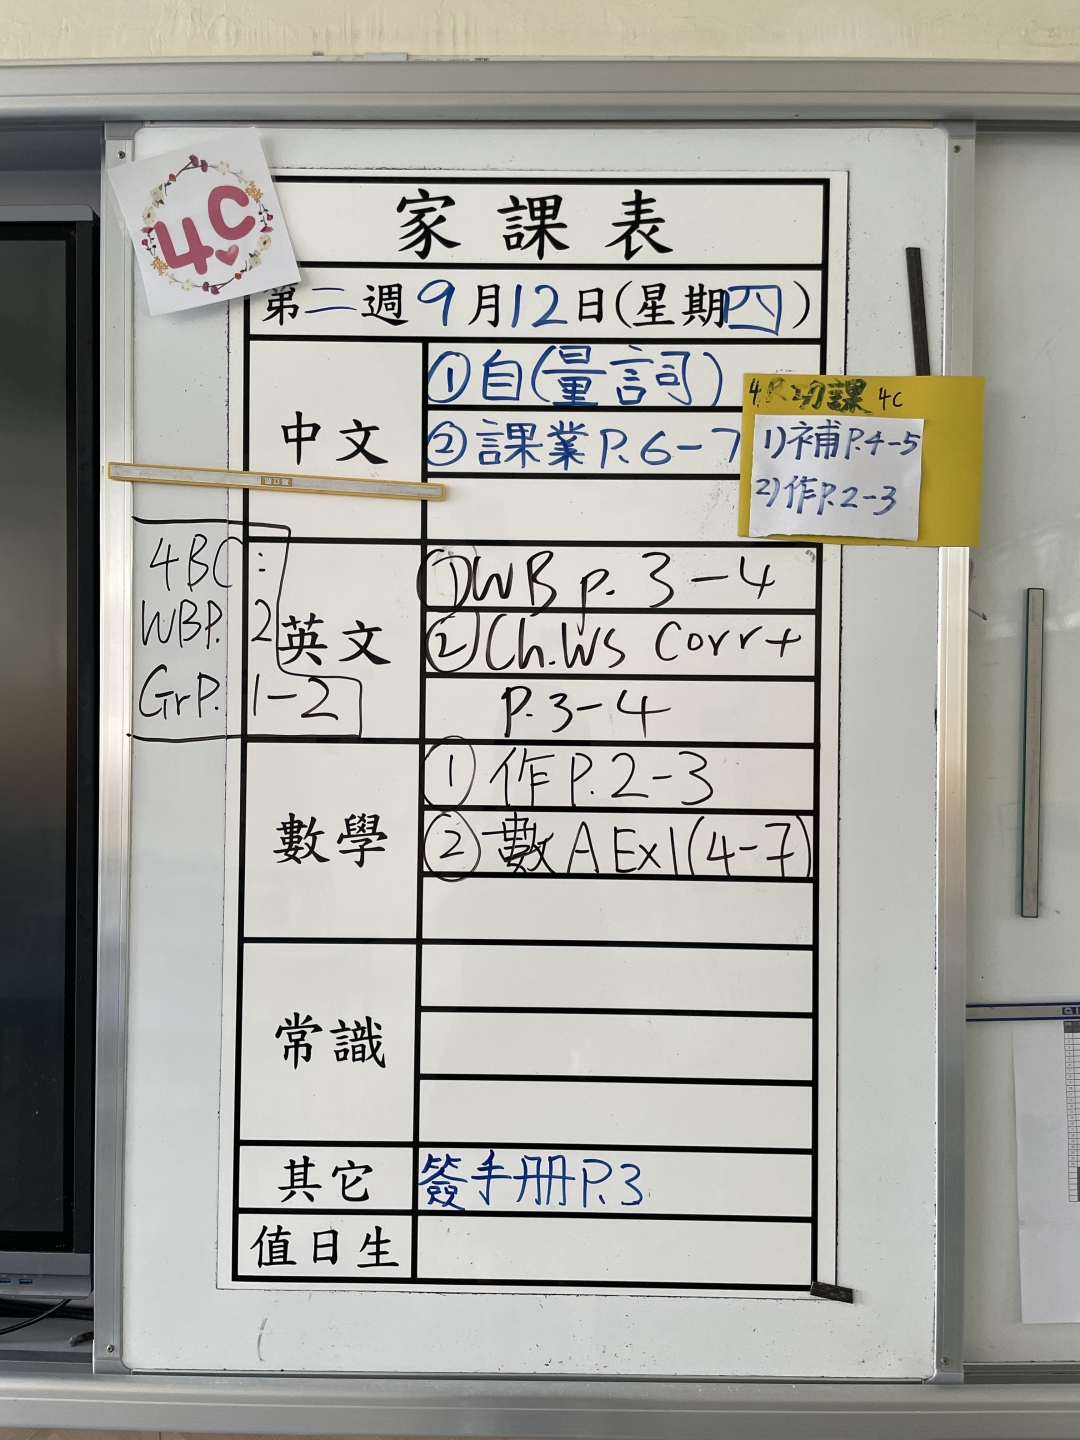 4C
家課表
第二週9月12日(星期四)
中文
①自(量詞)
②課業P.6-7
功課 4C
1)補P.4-5
2)作P.2-3
4BC:
WBP. 2
GrP. 1-2
英文
①WB p. 3-4
②Ch.WS Corr+
P.3-4
數學
①作P.2-3
②數A Ex1(4-7)
常識
其它
簽手册P.3
值日生